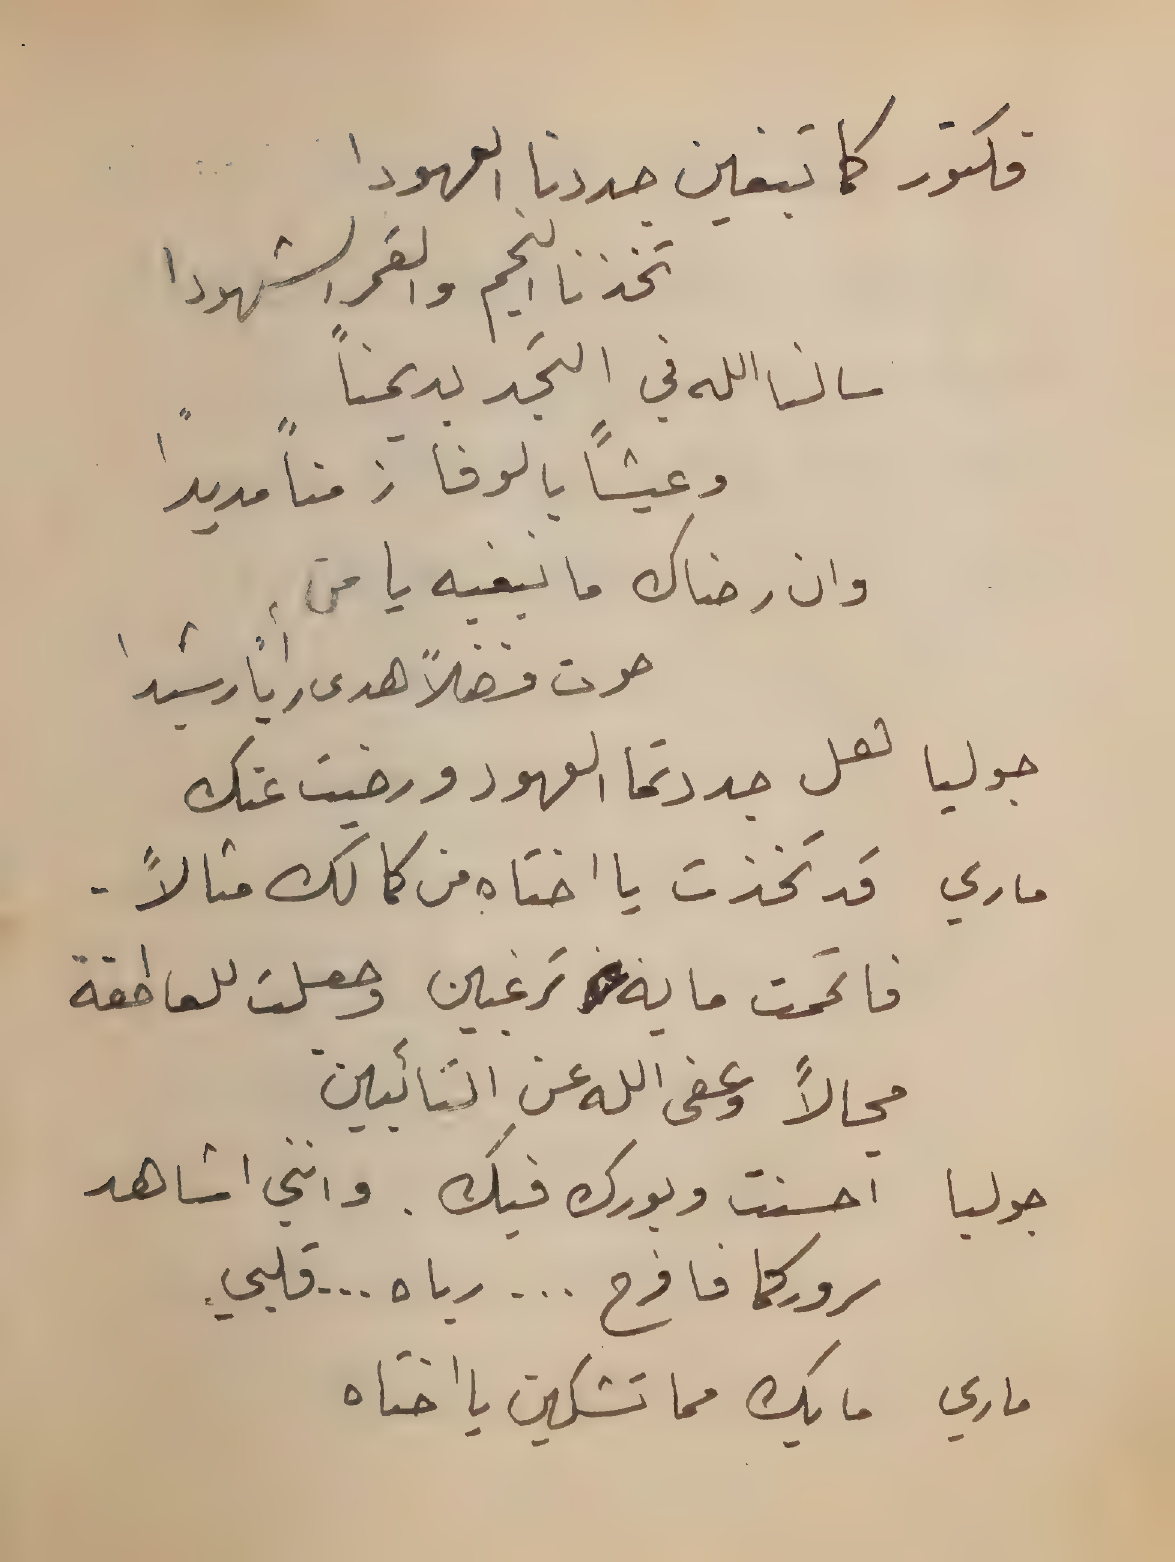 فكتور كما تبغين جددنا العهودا
تخذنا النجم والقمر الشهودا
سالنا الله في النجد يديمناً
وعيشاً بالوفا زمناً مديداً
وان رضاك ما نبغيه يا من
حوت فضلاً هدى رأيا رشيدا
جوليا لعل جددتما العهود ورضيت عنك
ماري قد تخذت يا اختاه من كمالك مثالاً -
فاتممت ما به ترغبين وجعلت للعاطفة
مجالاً وعفى الله عن التائبين
جوليا احسنت وبورك فيك . وانني اشاهد
سروركما فافرح ... رباه ... قلبي
ماري مابك مما تشكين يا اختاه